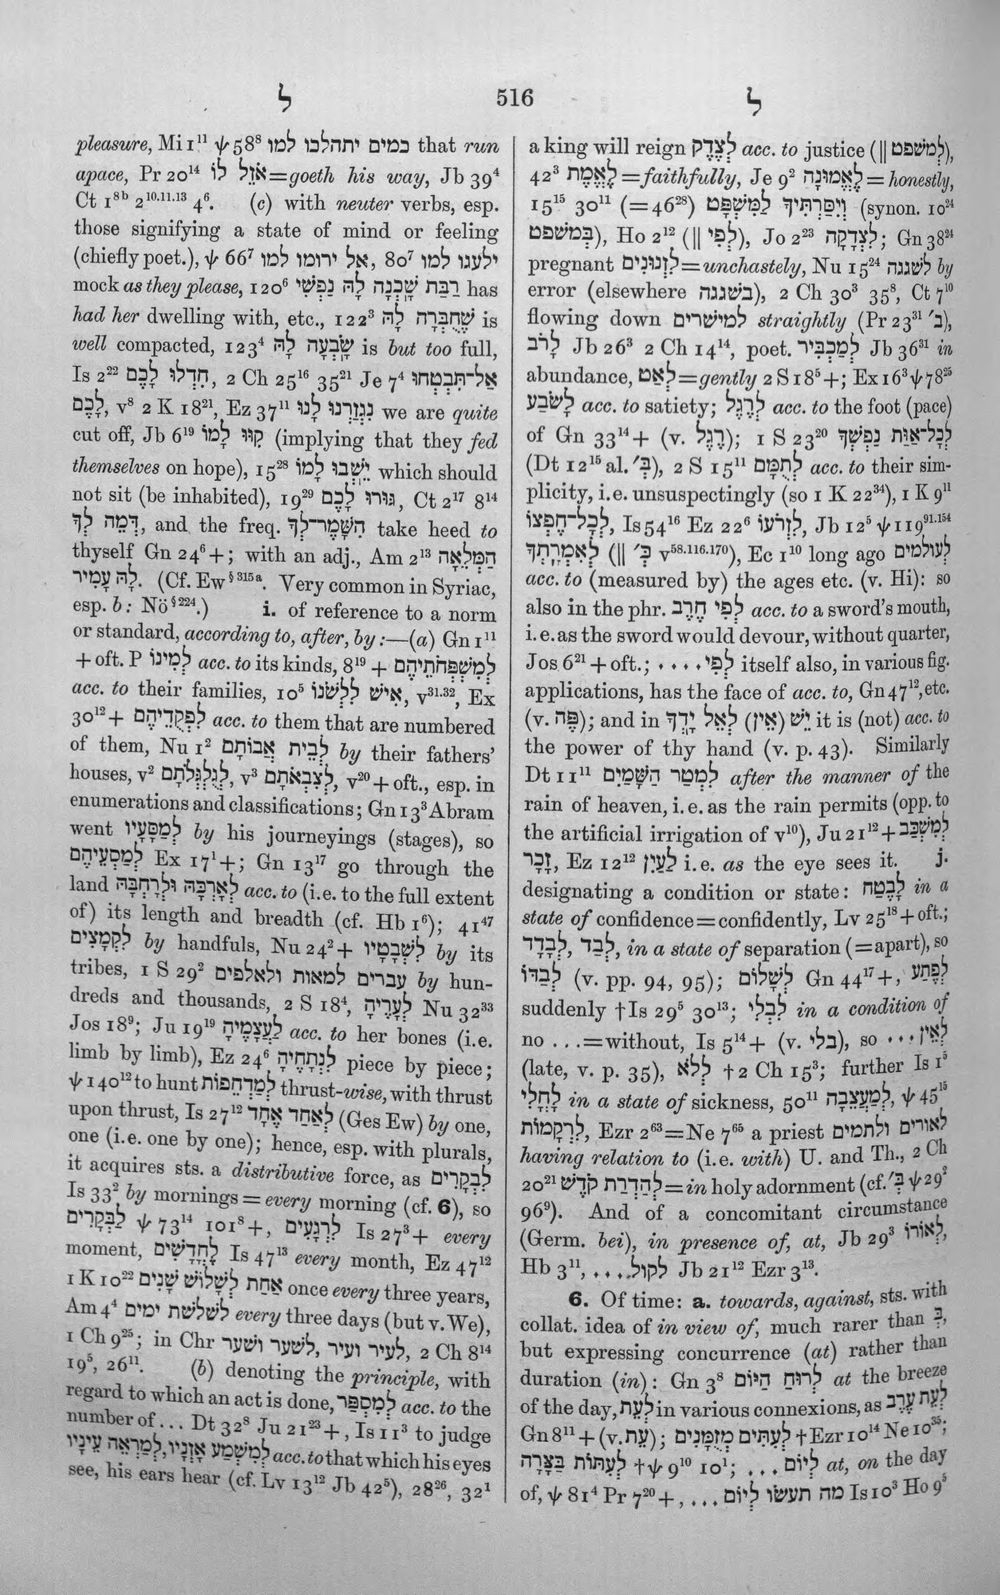 ל 516 ל
pleasure, Mi 1¹¹ ψ 58⁸ כמים יתהלכו למו that run
apace, Pr 20¹⁴ אֹזֵל לוֹ = goeth his way, Jb 39⁴
Ct 1⁸ᵇ 2¹⁰·¹¹·¹³ 4⁶. (c) with neuter verbs, esp.
those signifying a state of mind or feeling
(chiefly poet.), ψ 66⁷ אַל ירומו למו, 80⁷ ילעגו למו
mock as they please, 120⁶ רַבַּת שָֽׁכְנָה לָּהּ נַפְשִׁי has
had her dwelling with, etc., 122³ שֶׁחֻבְּרָה לָּהּ is
well compacted, 123⁴ שָֽׂבְעָה לָּהּ is but too full,
Is 2²² חִדְלוּ לָכֶם, 2 Ch 25¹⁶ 35²¹ Je 7⁴ אַל־תִּבְטְחוּ
לָכֶם, v⁸ 2 K 18²¹, Ez 37¹¹ נִגְזַרְנוּ לָנוּ we are quite
cut off, Jb 6¹⁹ קִוּוּ לָמוֹ (implying that they fed
themselves on hope), 15²⁸ יֵשְׁבוּ לָמוֹ which should
not sit (be inhabited), 19²⁹ גּוּרוּ לָכֶם, Ct 2¹⁷ 8¹⁴
דְּמֵה לְךָ, and the freq. הִשָּׁמֶר־לְךָ take heed to
thyself Gn 24⁶ +; with an adj., Am 2¹³ הַמְּלֵאָה
לָהּ עָמִיר. (Cf. Ew § 315 a. Very common in Syriac,
esp. b: Nö § 224.) i. of reference to a norm
or standard, according to, after, by:—(a) Gn 1¹¹
+ oft. P לְמִינוֹ acc. to its kinds, 8¹⁹ + לְמִשְׁפְּחֹתֵיהֶם
acc. to their families, 10⁵ אִישׁ לִלְשֹׁנוֹ, v³¹·³², Ex
30¹² + לִפְקֻדֵיהֶם acc. to them that are numbered
of them, Nu 1² לְבֵית אֲבוֹתָם by their fathers'
houses, v² לְגֻלְגְּלֹתָם, v³ לְצִבְאֹתָם, v²⁰ + oft., esp. in
enumerations and classifications; Gn 13³ Abram
went לְמַסָּעָיו by his journeyings (stages), so
לְמַסְעֵיהֶם Ex 17¹ +; Gn 13¹⁷ go through the
land לְאָרְכָּהּ וּלְרָחְבָּהּ acc. to (i.e. to the full extent
of) its length and breadth (cf. Hb 1⁶); 41⁴⁷
לִקְמָצִים by handfuls, Nu 24² + לִשְׁבָטָיו by its
tribes, 1 S 29² עברים למאות ולאלפים by hun-
dreds and thousands, 2 S 18⁴, לְעָרֶיהָ Nu 32³³
Jos 18⁹; Ju 19¹⁹ לַעֲצָמֶיהָ acc. to her bones (i.e.
limb by limb), Ez 24⁶ לִנְתָחֶיהָ piece by piece;
ψ 140¹² to hunt לְמַדְחֵפוֹת thrust-wise, with thrust
upon thrust, Is 27¹² לְאַחַד אֶחָד (Ges Ew) by one,
one (i.e. one by one); hence, esp. with plurals,
it acquires sts. a distributive force, as לִבְקָרִים
Is 33² by mornings = every morning (cf. 6), so
לַבְּקָרִים ψ 73¹⁴ 101⁸ +, לִרְגָעִים Is 27³ + every
moment, לֶחֳדָשִׁים Is 47¹³ every month, Ez 47¹²
1 K 10²² אַחַת לְשָׁלוֹשׁ שָׁנִים once every three years,
Am 4⁴ לשלשת ימים every three days (but v. We),
1 Ch 9²⁵; in Chr לעיר ועיר, לשער ושער, 2 Ch 8¹⁴
19⁵, 26¹¹. (b) denoting the principle, with
regard to which an act is done, לְמִסְפַּר acc. to the
number of ... Dt 32⁸ Ju 21²³ +, Is 11³ to judge
לְמִשְׁמַע אָזְנָיו, לְמַרְאֵה עֵינָיו acc. to that which his eyes
see, his ears hear (cf. Lv 13¹² Jb 42⁵), 28²⁶, 32¹
a king will reign לְצֶדֶק acc. to justice (‖ לְמִשְׁפט),
42³ לֶאֱמֶת = faithfully, Je 9² לֶאֱמוּנָה = honestly,
15¹⁵ 30¹¹ (= 46²⁸) וְיִסַּרְתִּיךָ לַמִּשְׁפָּט (synon. 10²⁴
בְּמשפט), Ho 2¹² (‖ לְפִי), Jo 2²³ לִצְדָקָה; Gn 38²⁴
pregnant לִזְנוּנִים = unchastely, Nu 15²⁴ לשגגה by
error (elsewhere בשגגה), 2 Ch 30³ 35⁸, Ct 7¹⁰
flowing down למישרים straightly (Pr 23³¹ ב׳),
לָרֹב Jb 26³ 2 Ch 14¹⁴, poet. לְמַכְבִּיר Jb 36³¹ in
abundance, לְאַט = gently 2 S 18⁵ +; Ex 16³ ψ 78²⁵
לָשֹׂבַע acc. to satiety; לְרֶגֶל acc. to the foot (pace)
of Gn 33¹⁴ + (v. רֶגֶל); 1 S 23²⁰ לְכָל־אַוַּת נַפְשְׁךָ
(Dt 12¹⁵ al. בְּ׳), 2 S 15¹¹ לְתֻמָּם acc. to their sim-
plicity, i.e. unsuspectingly (so 1 K 22³⁴), 1 K 9¹¹
לְכָל־חֶפְצוֹ, Is 54¹⁶ Ez 22⁶ לִזְרֹעוֹ, Jb 12⁵ ψ 119⁹¹·¹⁵⁴
לְאִמְרָתְךָ (‖ כְּ׳ v⁵⁸·¹¹⁶·¹⁷⁰), Ec 1¹⁰ long ago לְעולמים
acc. to (measured by) the ages etc. (v. Hi): so
also in the phr. לְפִי חֶרֶב acc. to a sword's mouth,
i.e. as the sword would devour, without quarter,
Jos 6²¹ + oft.; .... לְפִי itself also, in various fig.
applications, has the face of acc. to, Gn 47¹², etc.
(v. פֶּה); and in יֵשׁ (אֵין) לְאֵל יָדְךָ it is (not) acc. to
the power of thy hand (v. p. 43). Similarly
Dt 11¹¹ לִמְטַר הַשָּׁמַיִם after the manner of the
rain of heaven, i.e. as the rain permits (opp. to
the artificial irrigation of v¹⁰), Ju 21¹² + לְמִשְׁכַּב
זָכָר, Ez 12¹² לָעַיִן i.e. as the eye sees it. j.
designating a condition or state: לָבֶטַח in a
state of confidence = confidently, Lv 25¹⁸ + oft.;
לְבַד, לְבָדָד, in a state of separation (= apart), so
לְבַדּוֹ (v. pp. 94, 95); לְשָׁלוֹם Gn 44¹⁷ +, לְפֶתַע
suddenly † Is 29⁵ 30¹³; לִבְלִי in a condition of
no ... = without, Is 5¹⁴ + (v. בלי), so ... לְאֵין
(late, v. p. 35), לְלֹא † 2 Ch 15³; further Is 1⁵
לָחֳלִי in a state of sickness, 50¹¹ לְמַעֲצֵבָה, ψ 45¹⁵
לִרְקָמוֹת, Ezr 2⁶³ = Ne 7⁶⁵ a priest לאורים ולתמים
having relation to (i.e. with) U. and Th., 2 Ch
20²¹ לְהַדְרַת קֹדֶשׁ = in holy adornment (cf. בְּ׳ ψ 29²
96⁹). And of a concomitant circumstance
(Germ. bei), in presence of, at, Jb 29³ לְאוֹרוֹ,
Hb 3¹¹, .... לְקוֹל Jb 21¹² Ezr 3¹³.
6. Of time: a. towards, against, sts. with
collat. idea of in view of, much rarer than בְּ,
but expressing concurrence (at) rather than
duration (in): Gn 3⁸ לְרוּחַ הַיּוֹם at the breeze
of the day, לְעֵת in various connexions, as לְעֵת עֶרֶב
Gn 8¹¹ + (v. עֵת); לְעִתִּים מְזֻמָּנִים † Ezr 10¹⁴ Ne 10³⁵;
לְעִתּוֹת בַּצָּרָה † ψ 9¹⁰ 10¹; ... לְיוֹם at, on the day
of, ψ 81⁴ Pr 7²⁰ +, ... מה תעשו לְיוֹם Is 10³ Ho 9⁵